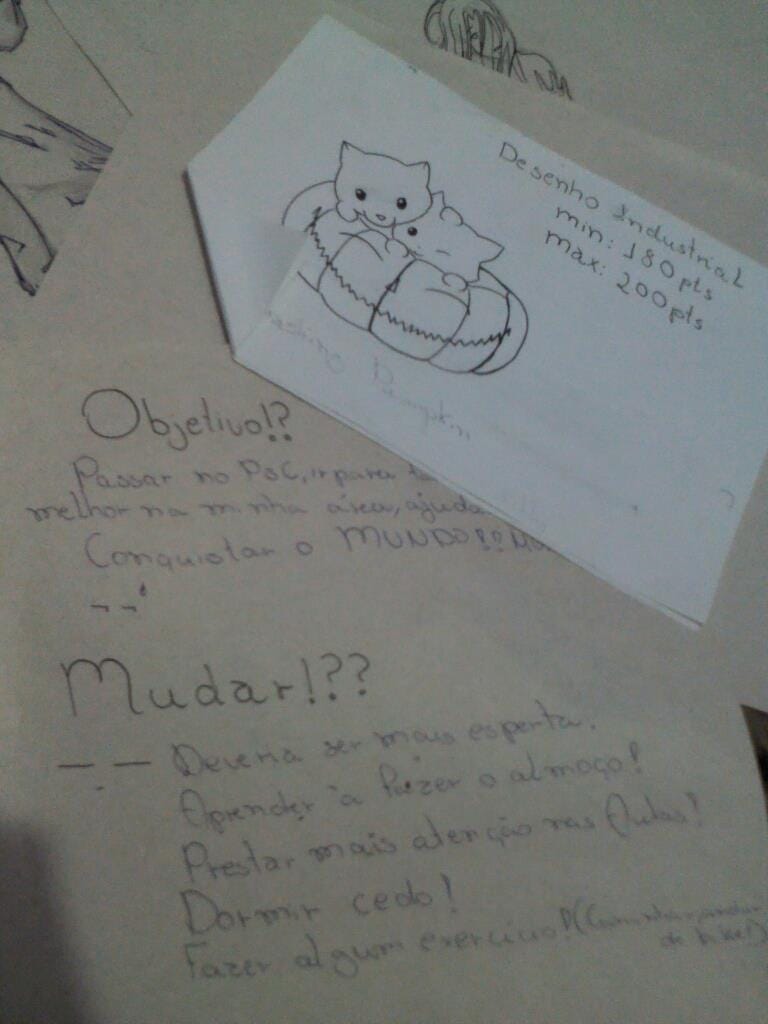 Desenho Industrial
min: 180 pts
max: 200 pts
Objetivo!?
Passar no PSC, ir para
melhor na minha área, ajuda
Conquistar o MUNDO!!
¬¬'
Mudar!??
—.— Deveria ser mais esperta.
Aprender à fazer o almoço!
Prestar mais atenção nas Aulas!
Dormir cedo!
Fazer algum exercício!
de bike!)